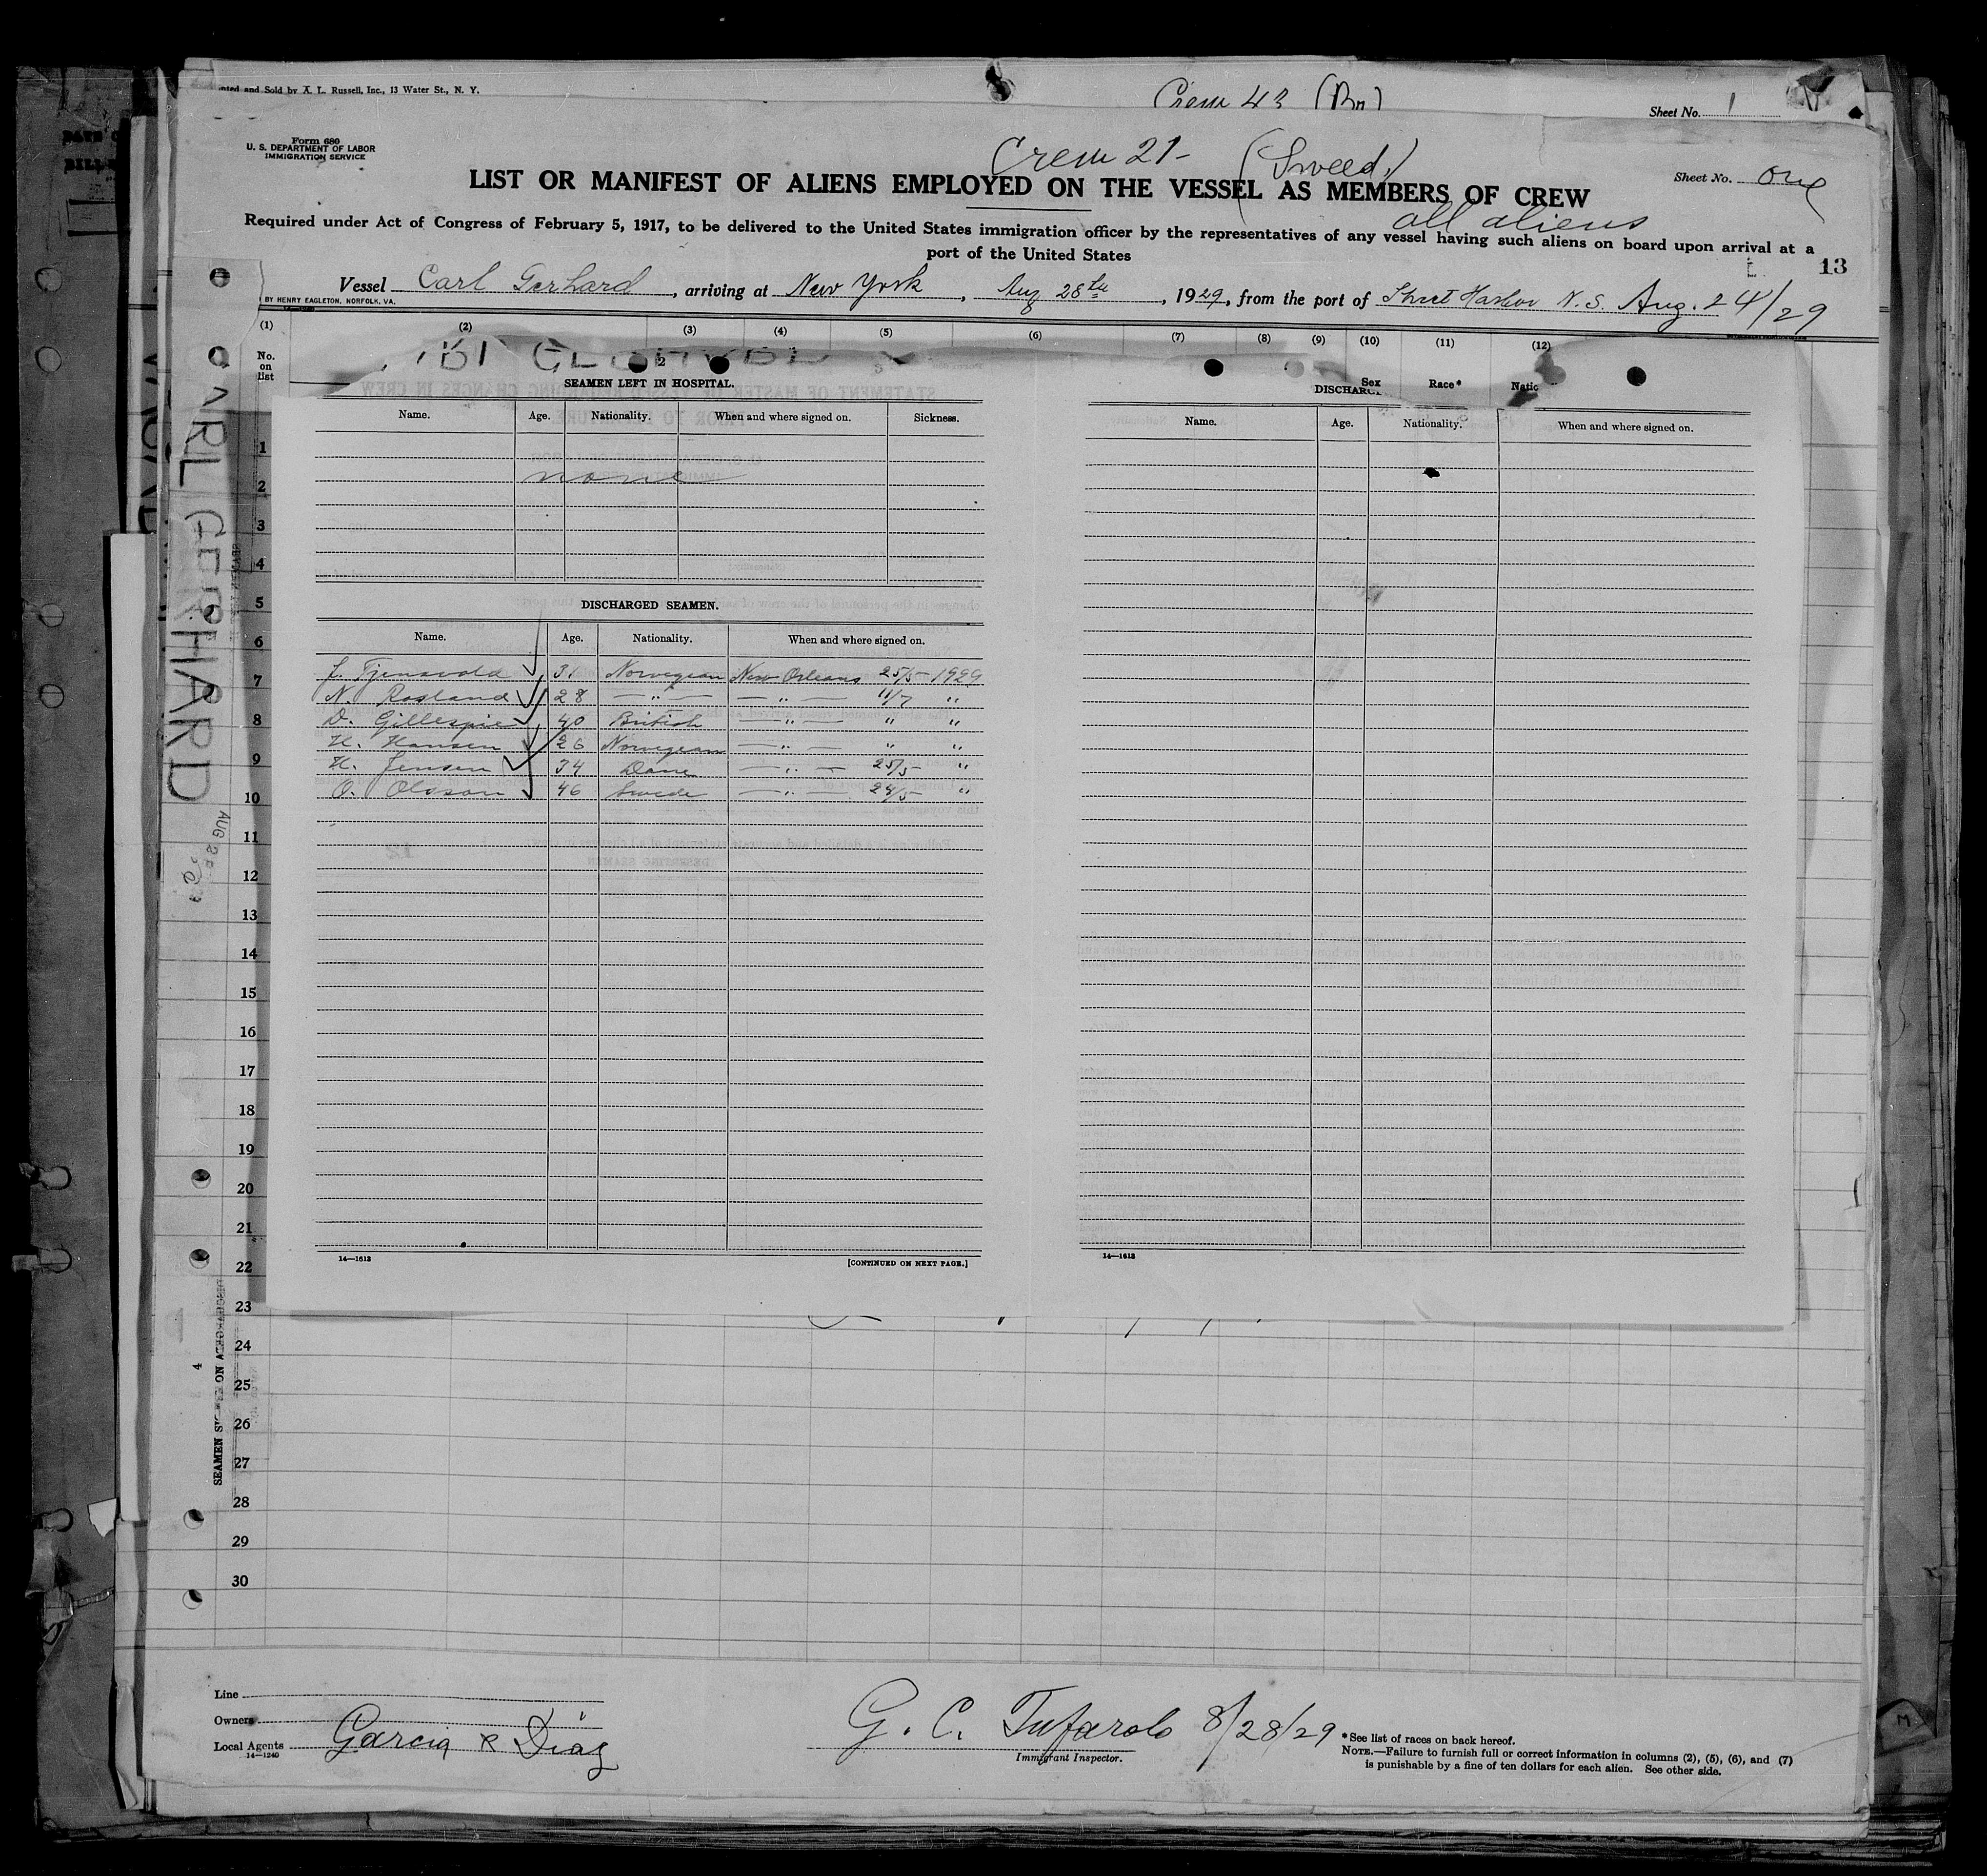 nted and Sold by A. L. Russell, Inc., 13 Water St., N. Y.
Crew 43 (Br)
Sheet No. 1
Form 680
U. S. DEPARTMENT OF LABOR
IMMIGRATION SERVICE
Crew 21- (Sweed.)
Sheet No. One
LIST OR MANIFEST OF ALIENS EMPLOYED ON THE VESSEL AS MEMBERS OF CREW
all aliens
Required under Act of Congress of February 5, 1917, to be delivered to the United States immigration officer by the representatives of any vessel having such aliens on board upon arrival at a
port of the United States
13
Vessel Carl Gerhard, arriving at New York, Aug 28th, 1929, from the port of Sheet Harbor N.S. Aug. 24/29
BY HENRY EAGLETON, NORFOLK, VA.
(1) (2) (3) (4) (5) (6) (7) (8) (9) (10) (11) (12)
No. on list
2
Sex Race* Natio
SEAMEN LEFT IN HOSPITAL.
Name. Age. Nationality. When and where signed on. Sickness.
none
DISCHARGED SEAMEN.
Name. Age. Nationality. When and where signed on.
J. Tjensvold 31 Norwegian New Orleans 25/5-1929
N. Rogland 28 — " — — " — 11/7 "
D. Gillespie 40 British — " — " "
H. Hansen 26 Norwegian — " — " "
H. Jensen 34 Dane — " — 25/5 "
O. Olsson 46 Swede — " — 24/5 "
14—1613
[CONTINUED ON NEXT PAGE.]
DISCHARG
Name. Age. Nationality. When and where signed on.
14—1613
1
2
3
4
5
6
7
8
9
10
11
12
13
14
15
16
17
18
19
20
21
22
23
24
25
26
27
28
29
30
CARL GERHARD
AUG 28
4
SEAMEN
Line
Owners
Local Agents Garcia & Diaz
14—1240
G. C. Tufarolo 8/28/29
Immigrant Inspector.
*See list of races on back hereof.
NOTE.—Failure to furnish full or correct information in columns (2), (5), (6), and (7)
is punishable by a fine of ten dollars for each alien. See other side.
M